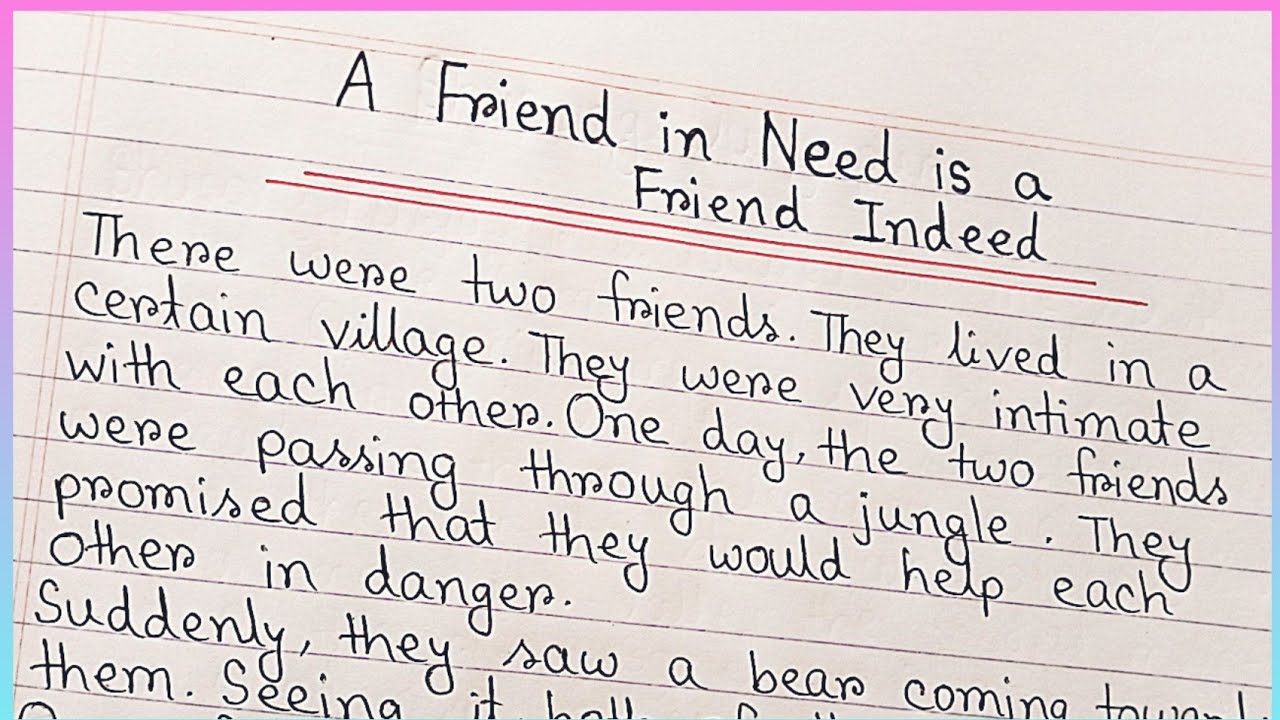 A Friend in Need is a
Friend Indeed
There were two friends. They lived in a
certain village. They were very intimate
with each other. One day, the two friends
were passing through a jungle. They
promised that they would help each
other in danger.
Suddenly, they saw a bear coming
them. Seeing it